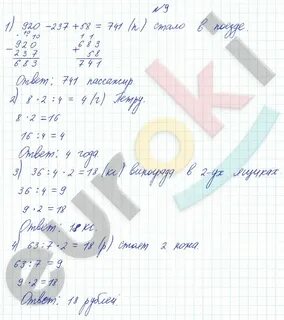 №9
1) 920 - 237 + 58 = 741 (п) стало в поезде.
- 920 + 683
237 58
683 741
Ответ: 741 пассажир.
2) 8 · 2 : 4 = 4 (г) Петру.
8 · 2 = 16
16 : 4 = 4
Ответ: 4 года
3) 36 : 4 · 2 = 18 (кг) винограда в 2-ух ящиках
36 : 4 = 9
9 · 2 = 18
Ответ: 18 кг.
4) 63 : 7 · 2 = 18 (р) стоят 2 ножа.
63 : 7 = 9
9 · 2 = 18
Ответ: 18 рублей
euroki